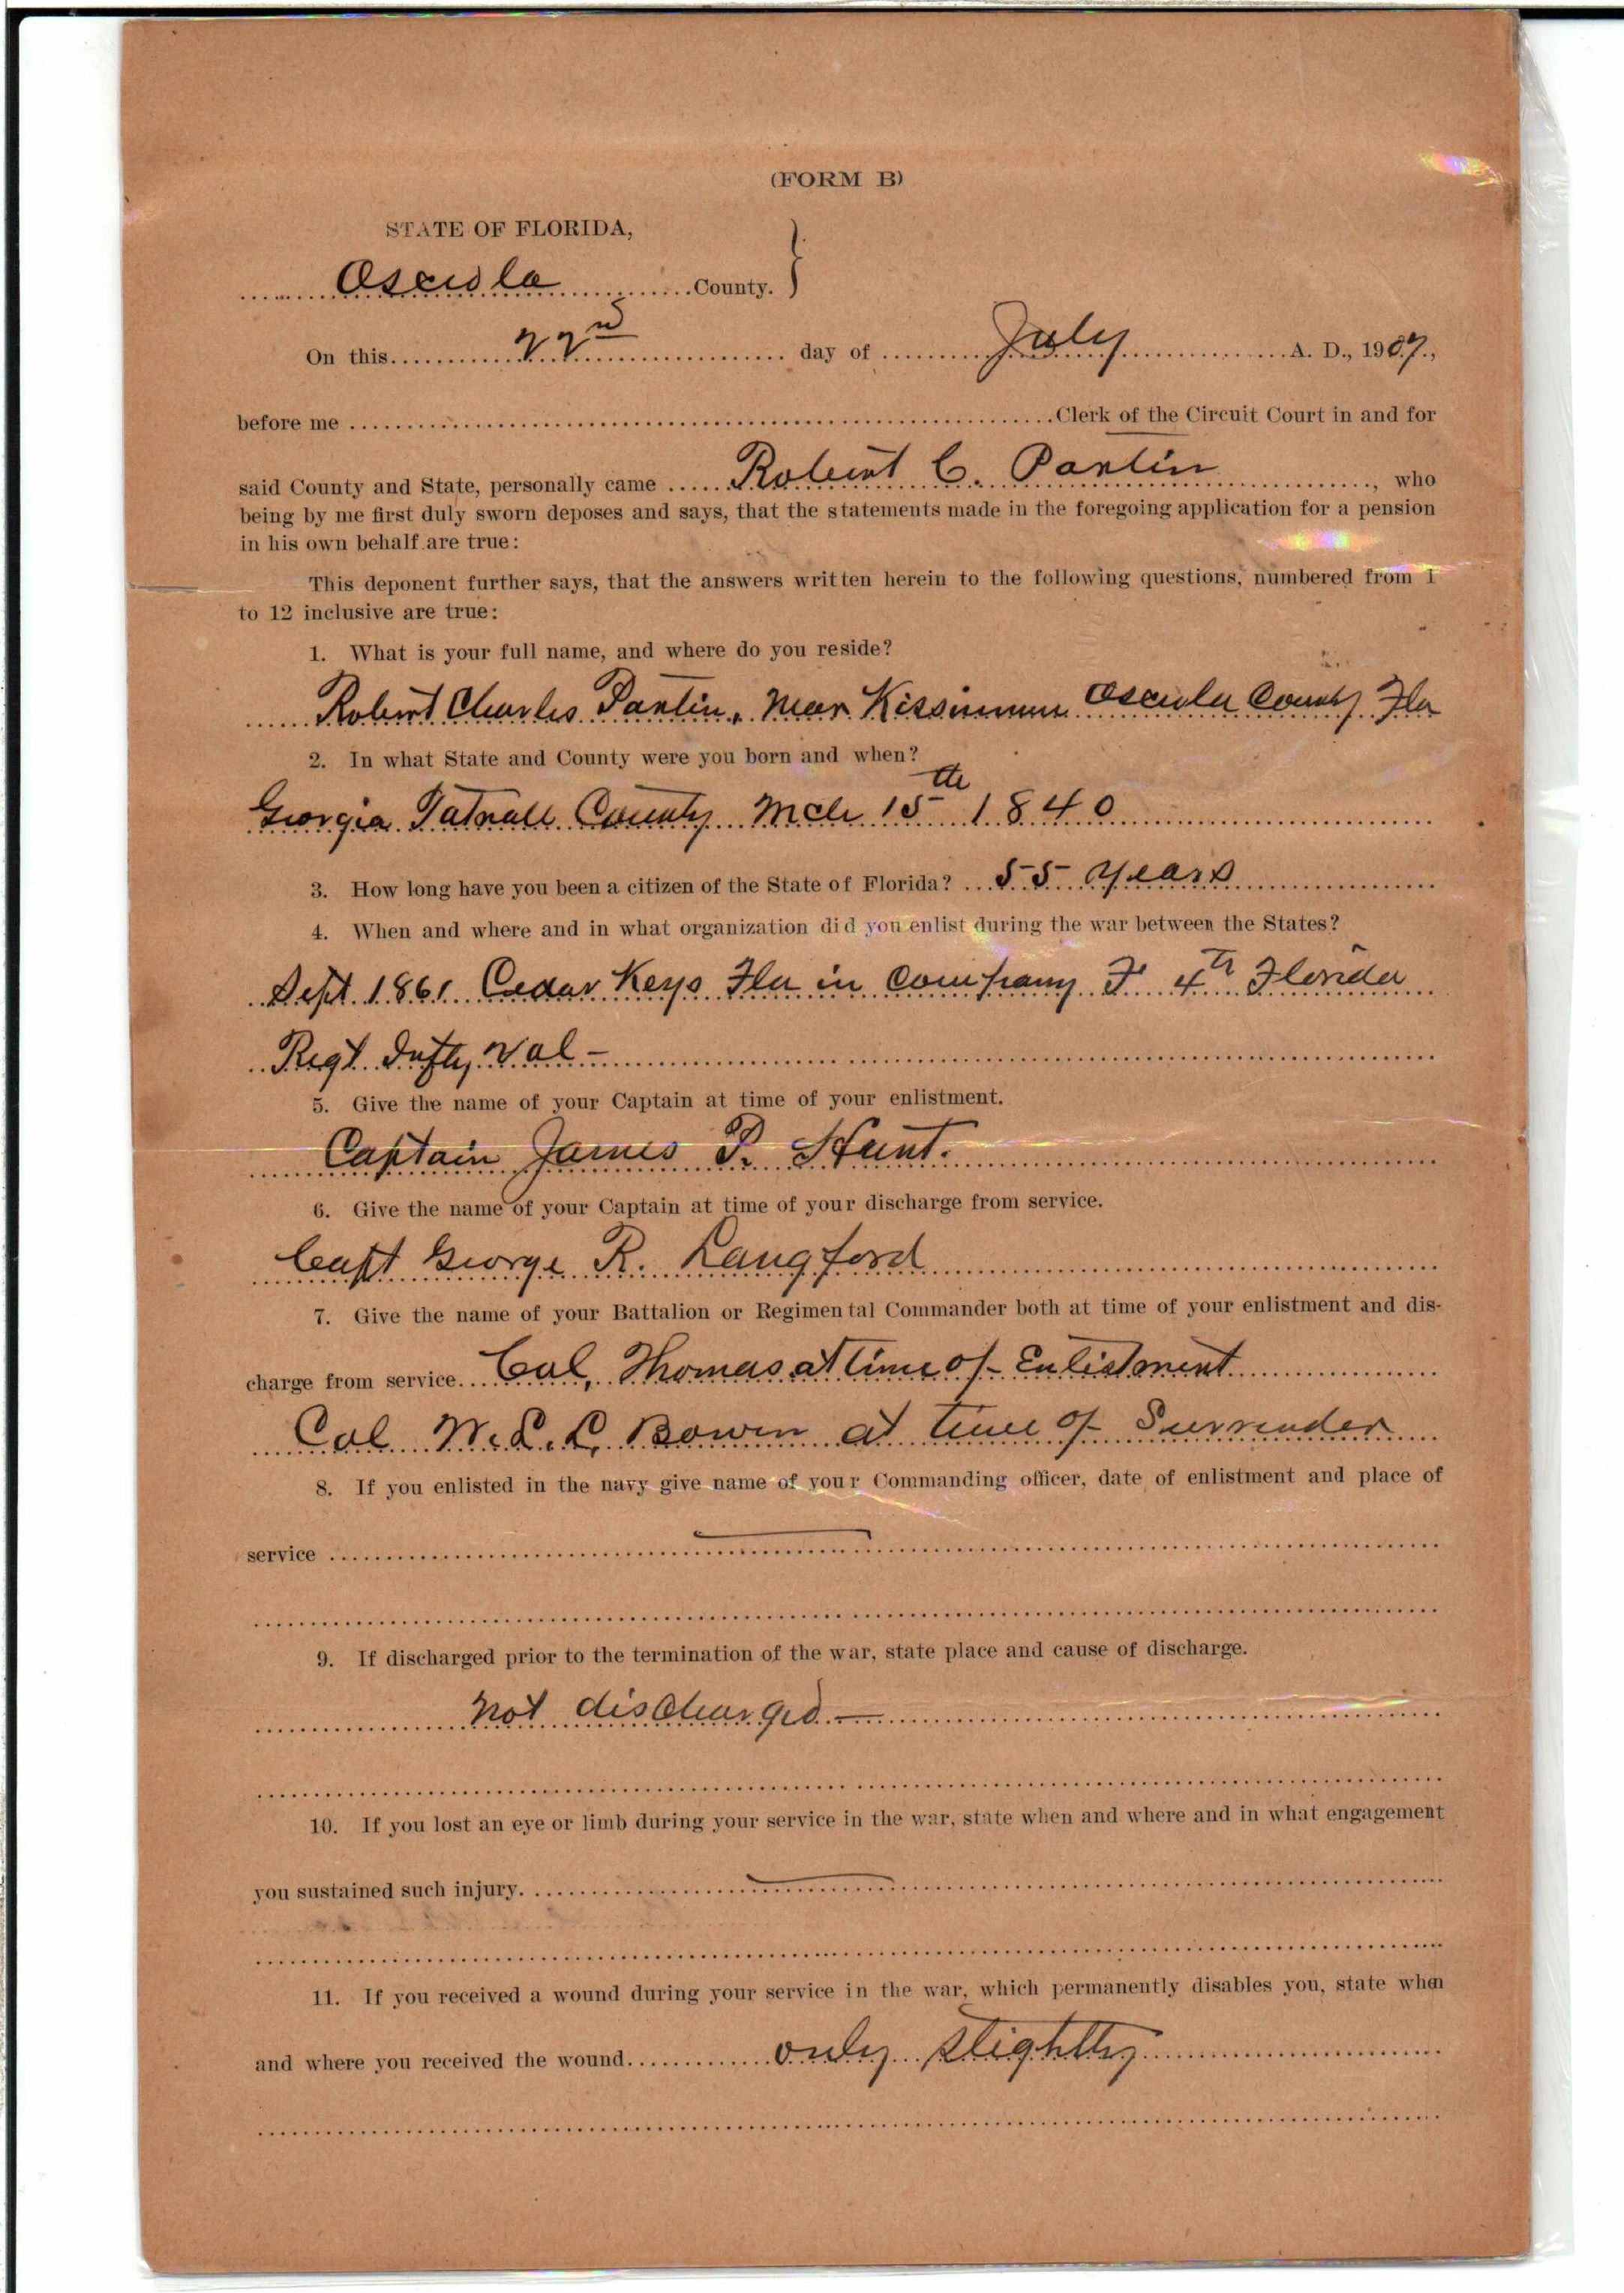 (FORM B)
STATE OF FLORIDA,
Osceola County. }
On this 22nd day of July A. D., 1907,
before me Clerk of the Circuit Court in and for
said County and State, personally came Robert C. Partin, who
being by me first duly sworn deposes and says, that the statements made in the foregoing application for a pension
in his own behalf are true:
This deponent further says, that the answers written herein to the following questions, numbered from 1
to 12 inclusive are true:
1. What is your full name, and where do you reside?
Robert Charles Partin, Near Kissimmee Osceola County Fla
2. In what State and County were you born and when?
Georgia Tatnall County Mch 15th 1840
3. How long have you been a citizen of the State of Florida? 55 Years
4. When and where and in what organization did you enlist during the war between the States?
Sept. 1861 Cedar Keys Fla in Company F 4th Florida
Regt. Infty Vol -
5. Give the name of your Captain at time of your enlistment.
Captain James P. Hunt.
6. Give the name of your Captain at time of your discharge from service.
Capt George R. Langford
7. Give the name of your Battalion or Regimental Commander both at time of your enlistment and dis-
charge from service. Col, Thomas at time of Enlistment
Col W. L. L. Bowen at time of Surrender
8. If you enlisted in the navy give name of your Commanding officer, date of enlistment and place of
service
9. If discharged prior to the termination of the war, state place and cause of discharge.
Not discharged —
10. If you lost an eye or limb during your service in the war, state when and where and in what engagement
you sustained such injury.
11. If you received a wound during your service in the war, which permanently disables you, state when
and where you received the wound. only slightly